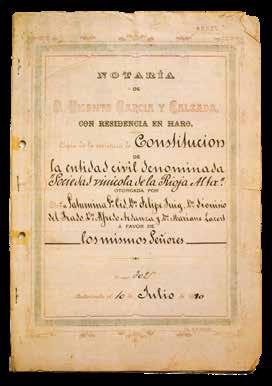 NOTARÍA
DE
D. VICENTE GARCIA Y CALZADA,
CON RESIDENCIA EN HARO.
Copia de la escritura de Constitucion
DE
la entidad civil denominada
"Sociedad vinícola de la Rioja Alta"
OTORGADA POR
Saturnina Dn. Felipe Puig, Dn. Dionisio
del Prado, Dn. Alfredo Ardanza y Dn. Mariano Lacort
Á FAVOR DE
los mismos Señores
10 Julio 90